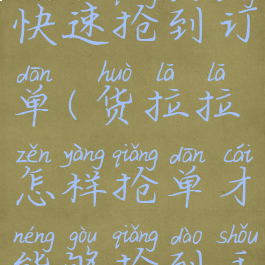 快速抢到订
dān huò lā lā
单(货拉拉
zěn yàng qiǎng dān cái
怎样抢单才
néng gòu qiǎng dào shǒu
能够抢到手